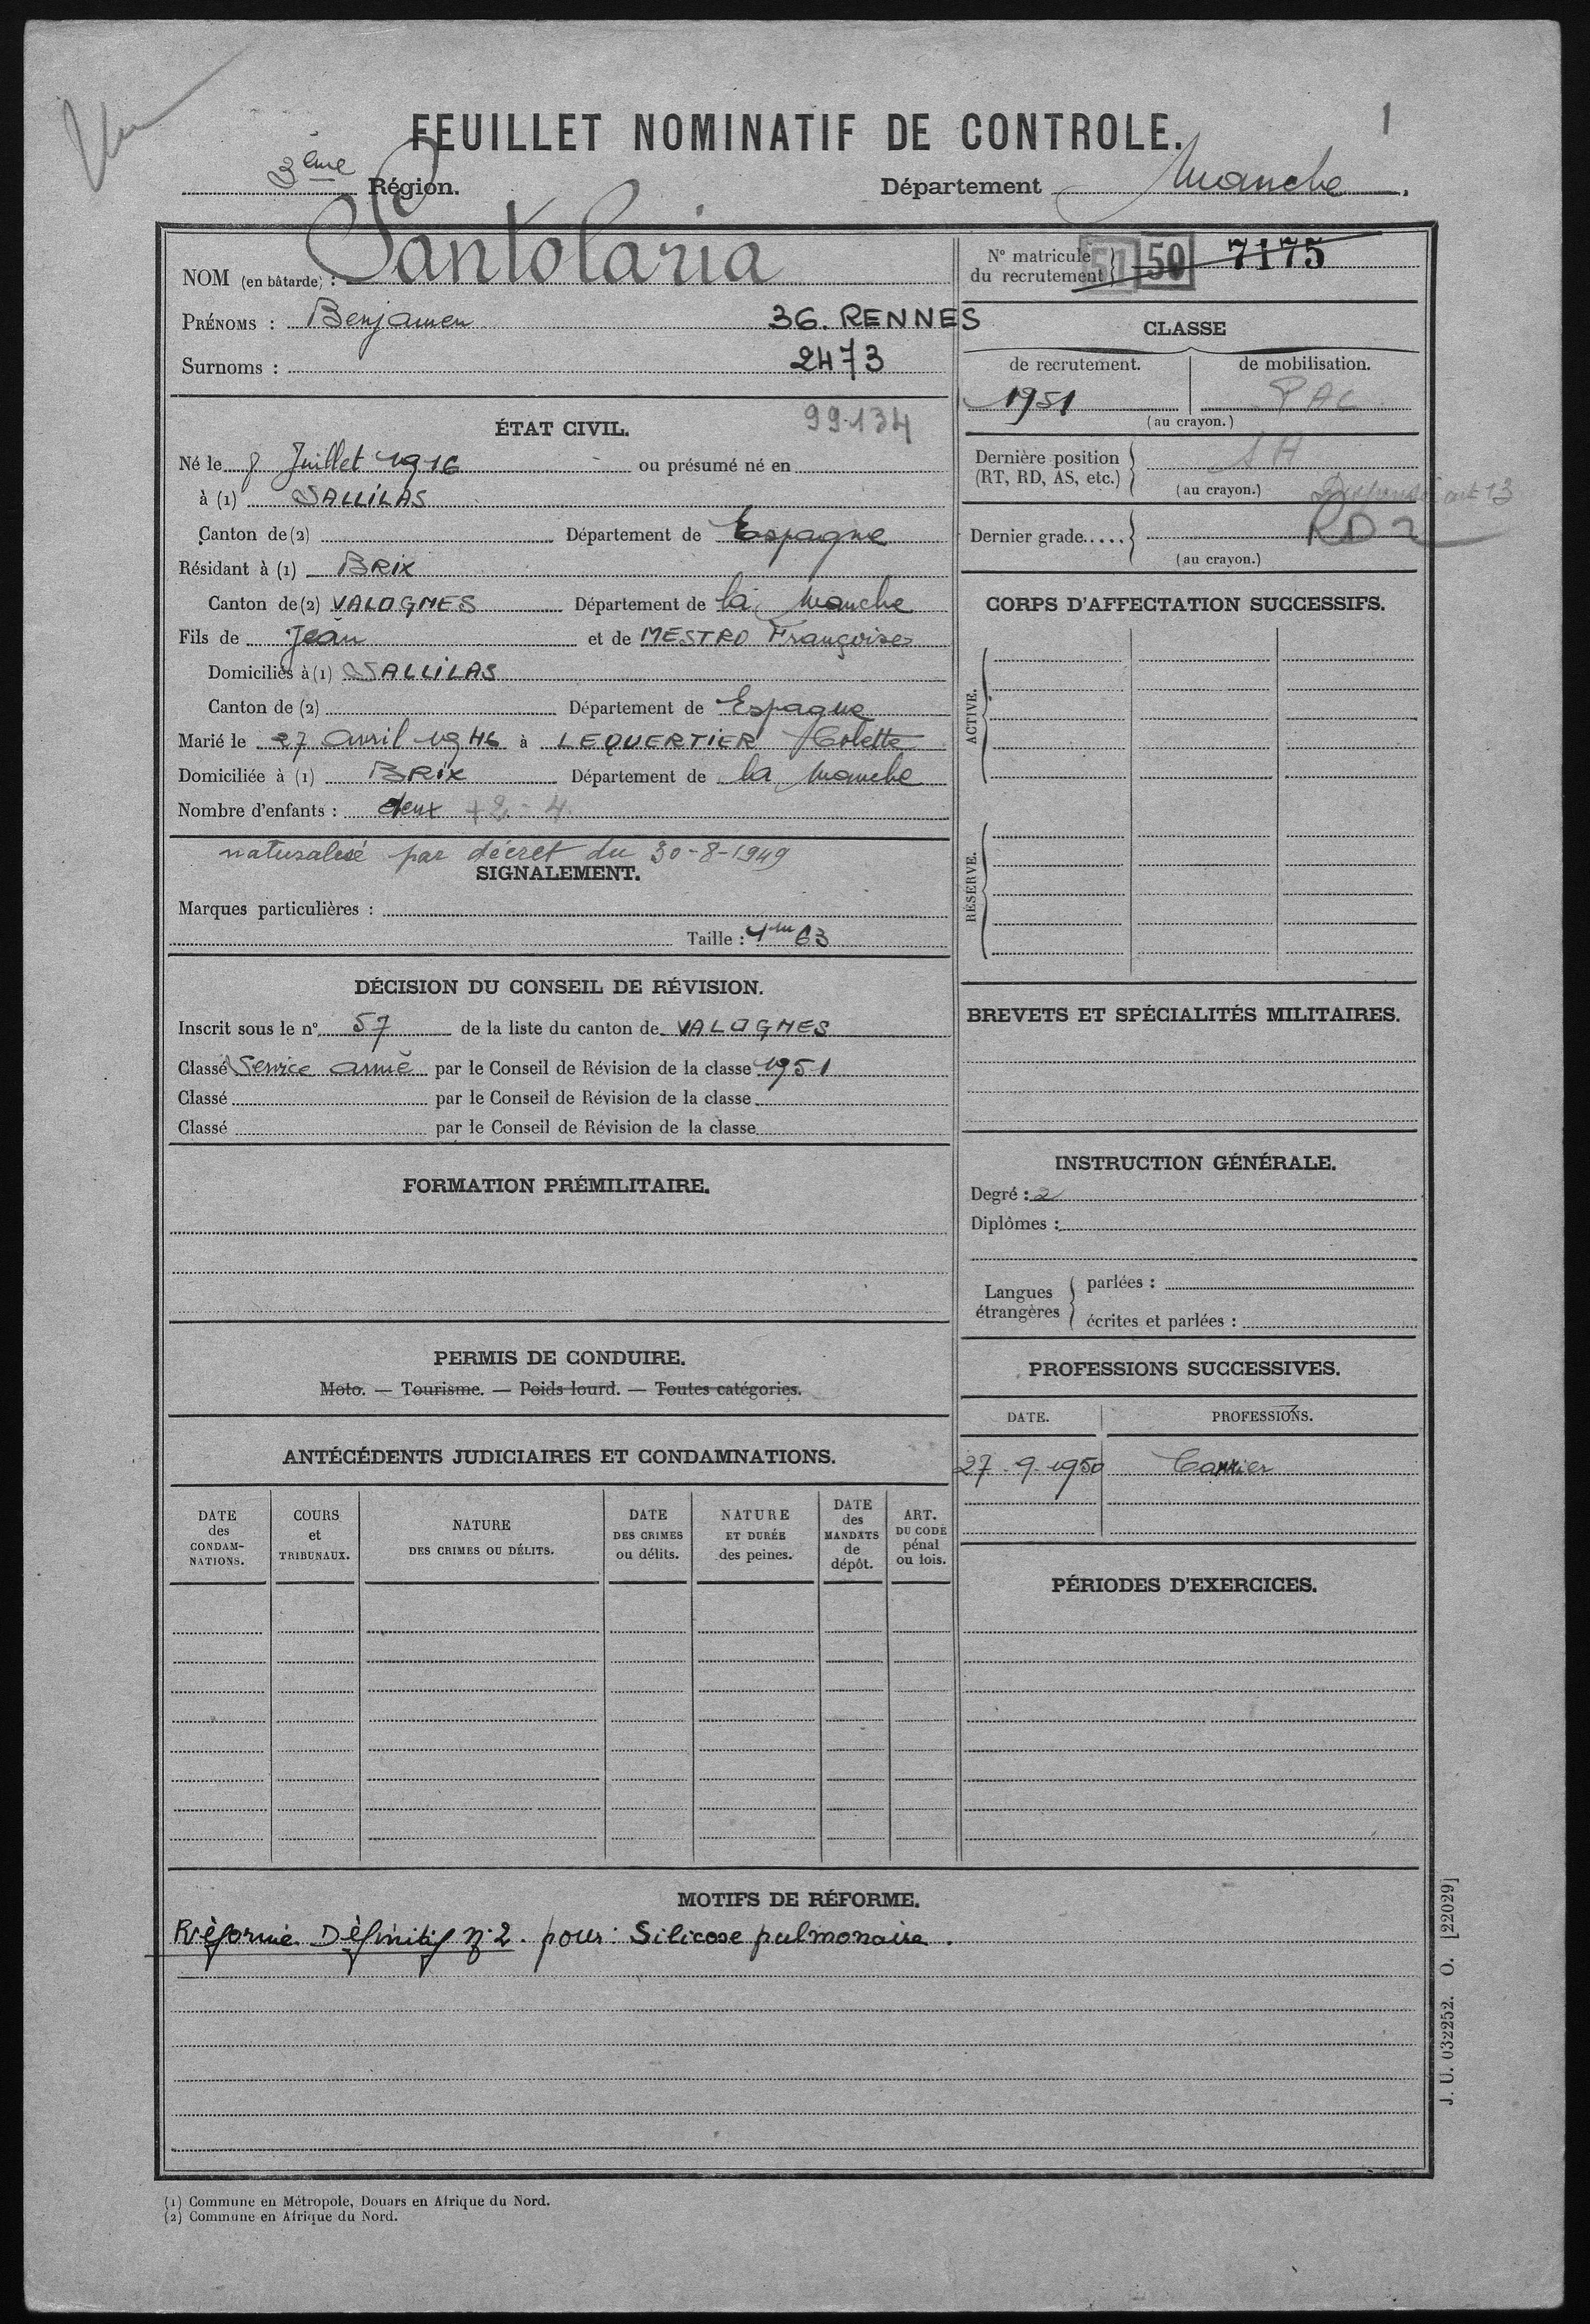 Vu
FEUILLET NOMINATIF DE CONTROLE.
1
3ème Région.
Département Manche.
NOM (en bâtarde) : Santolaria
PRÉNOMS : Benjamen
36. RENNES
Surnoms :
2473
ÉTAT CIVIL.
99-134
Né le 8 Juillet 1916 ou présumé né en
à (1) SALLILAS
Canton de (2) Département de Espagne
Résidant à (1) BRIX
Canton de (2) VALOGNES Département de la Manche
Fils de Jean et de MESTRO Françoise
Domiciliés à (1) SALLILAS
Canton de (2) Département de Espagne
Marié le 27 Avril 1946 à LEQUERTIER Colette
Domiciliée à (1) BRIX Département de la Manche
Nombre d'enfants : deux + 2 = 4
naturalisé par décret du 30-8-1949
SIGNALEMENT.
Marques particulières :
Taille : 1m 63
DÉCISION DU CONSEIL DE RÉVISION.
Inscrit sous le n° 57 de la liste du canton de VALOGNES
Classé Service armé par le Conseil de Révision de la classe 1951
Classé par le Conseil de Révision de la classe
Classé par le Conseil de Révision de la classe
FORMATION PRÉMILITAIRE.
PERMIS DE CONDUIRE.
Moto. — Tourisme. — Poids lourd. — Toutes catégories.
ANTÉCÉDENTS JUDICIAIRES ET CONDAMNATIONS.
DATE des CONDAM-NATIONS.
COURS et TRIBUNAUX.
NATURE DES CRIMES OU DÉLITS.
DATE DES CRIMES ou délits.
NATURE ET DURÉE des peines.
DATE des MANDATS de dépôt.
ART. DU CODE pénal ou lois.
N° matricule du recrutement 51 50 7175
CLASSE
de recrutement. de mobilisation.
1951 PAC
(au crayon.)
Dernière position (RT, RD, AS, etc.) SA
(au crayon.)
art 13
Dernier grade..... RD 2
(au crayon.)
CORPS D'AFFECTATION SUCCESSIFS.
ACTIVE.
RÉSERVE.
BREVETS ET SPÉCIALITÉS MILITAIRES.
INSTRUCTION GÉNÉRALE.
Degré : 2
Diplômes :
Langues étrangères
parlées :
écrites et parlées :
PROFESSIONS SUCCESSIVES.
DATE. PROFESSIONS.
27-9-1950 Carrier
PÉRIODES D'EXERCICES.
MOTIFS DE RÉFORME.
Réformé Définitif n°2. pour: Silicose pulmonaire.
J. U. 032252. O. [22029]
(1) Commune en Métropole, Douars en Afrique du Nord.
(2) Commune en Afrique du Nord.